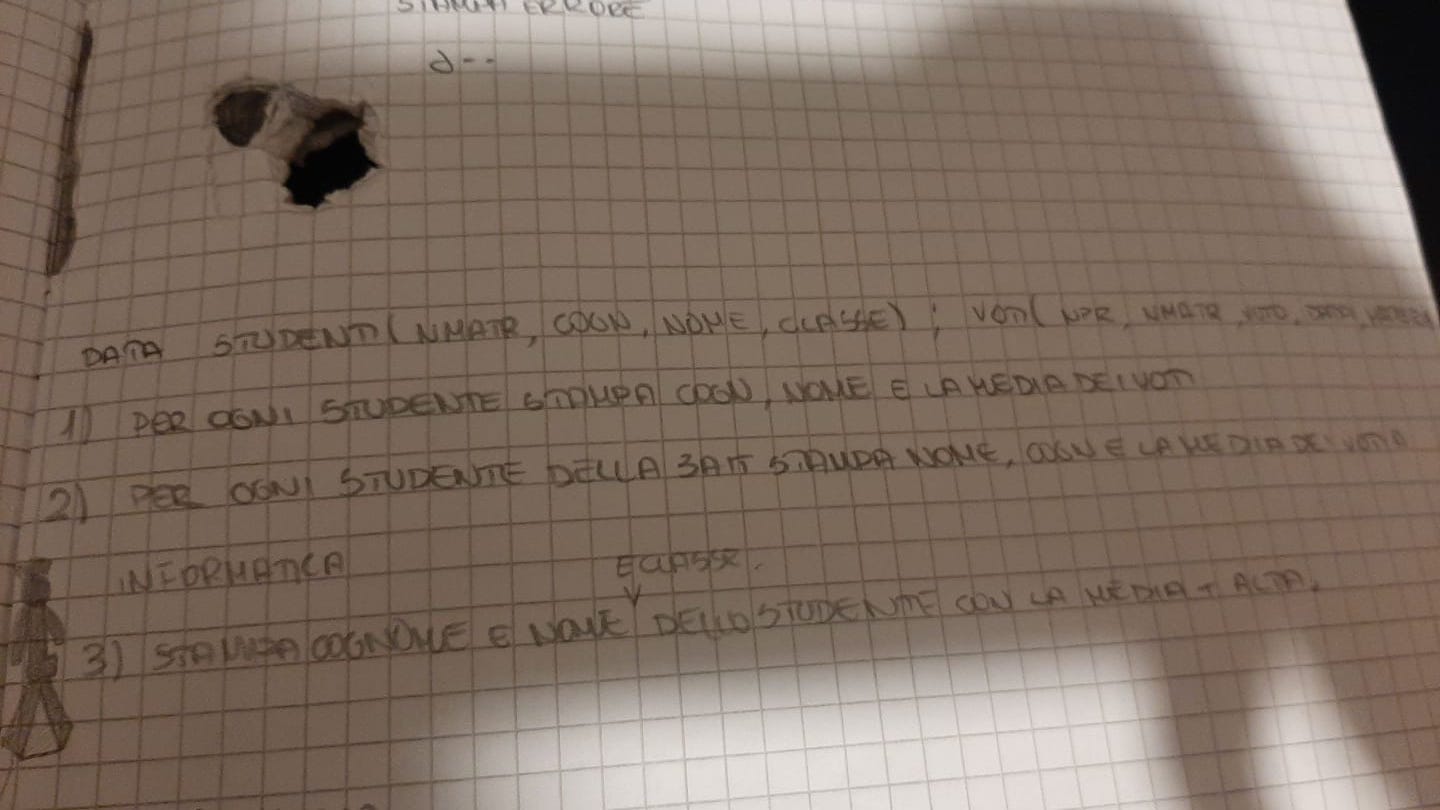 STAMPA ERRORE
d--
DATA STUDENTI (NMATR, COGN, NOME, CLASSE) ; VOTI (NPR, NMATR, VOTO, DATA, MATERIA
1) PER OGNI STUDENTE STAMPA COGN, NOME E LA MEDIA DEI VOTI
2) PER OGNI STUDENTE DELLA 3AIT STAMPA NOME, COGN E LA MEDIA DEI VOTI
INFORMATICA
E CLASSE.
3) STAMPA COGNOME E NOME DELLO STUDENTE CON LA MEDIA + ALTA.